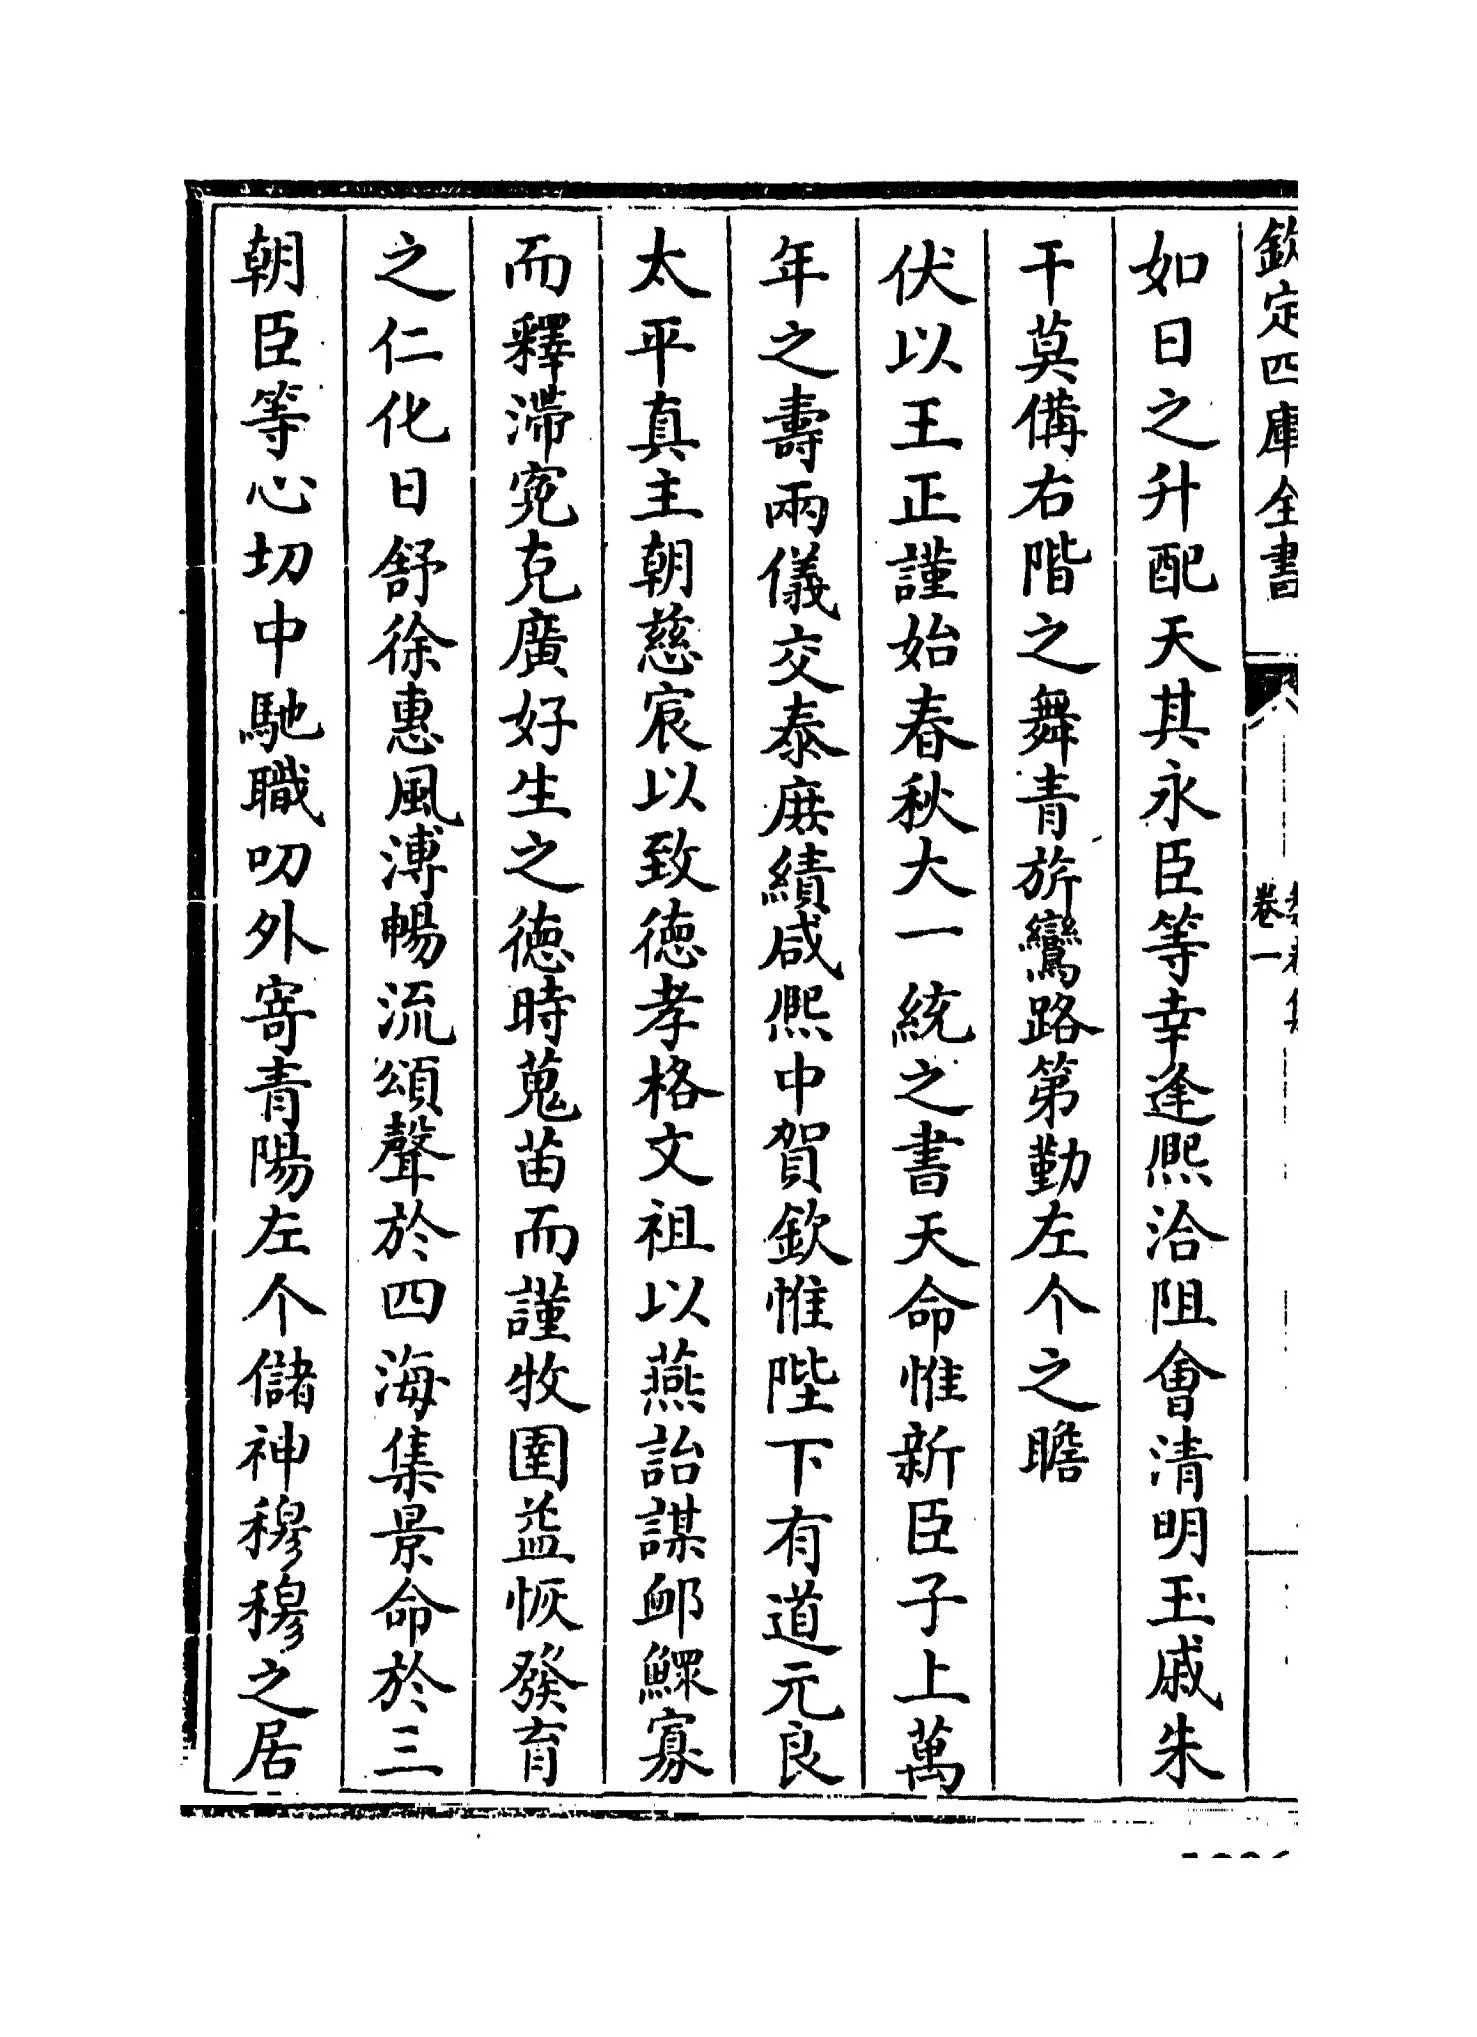 欽定四庫全書
卷一
如日之升配天其永臣等幸逢熈洽阻會清明玉戚朱
干莫備右階之舞青旂鸞路第勤左个之瞻
伏以王正謹始春秋大一統之書天命惟新臣子上萬
年之壽兩儀交泰庶績咸熈中賀欽惟陛下有道元良
太平真主朝慈宸以致徳孝格文祖以燕詒謀䘏鰥寡
而釋滯寃克廣好生之徳時蒐苗而謹牧圉益恢發育
之仁化日舒徐惠風溥暢流頌聲於四海集景命於三
朝臣等心切中馳職叨外寄青陽左个儲神穆穆之居